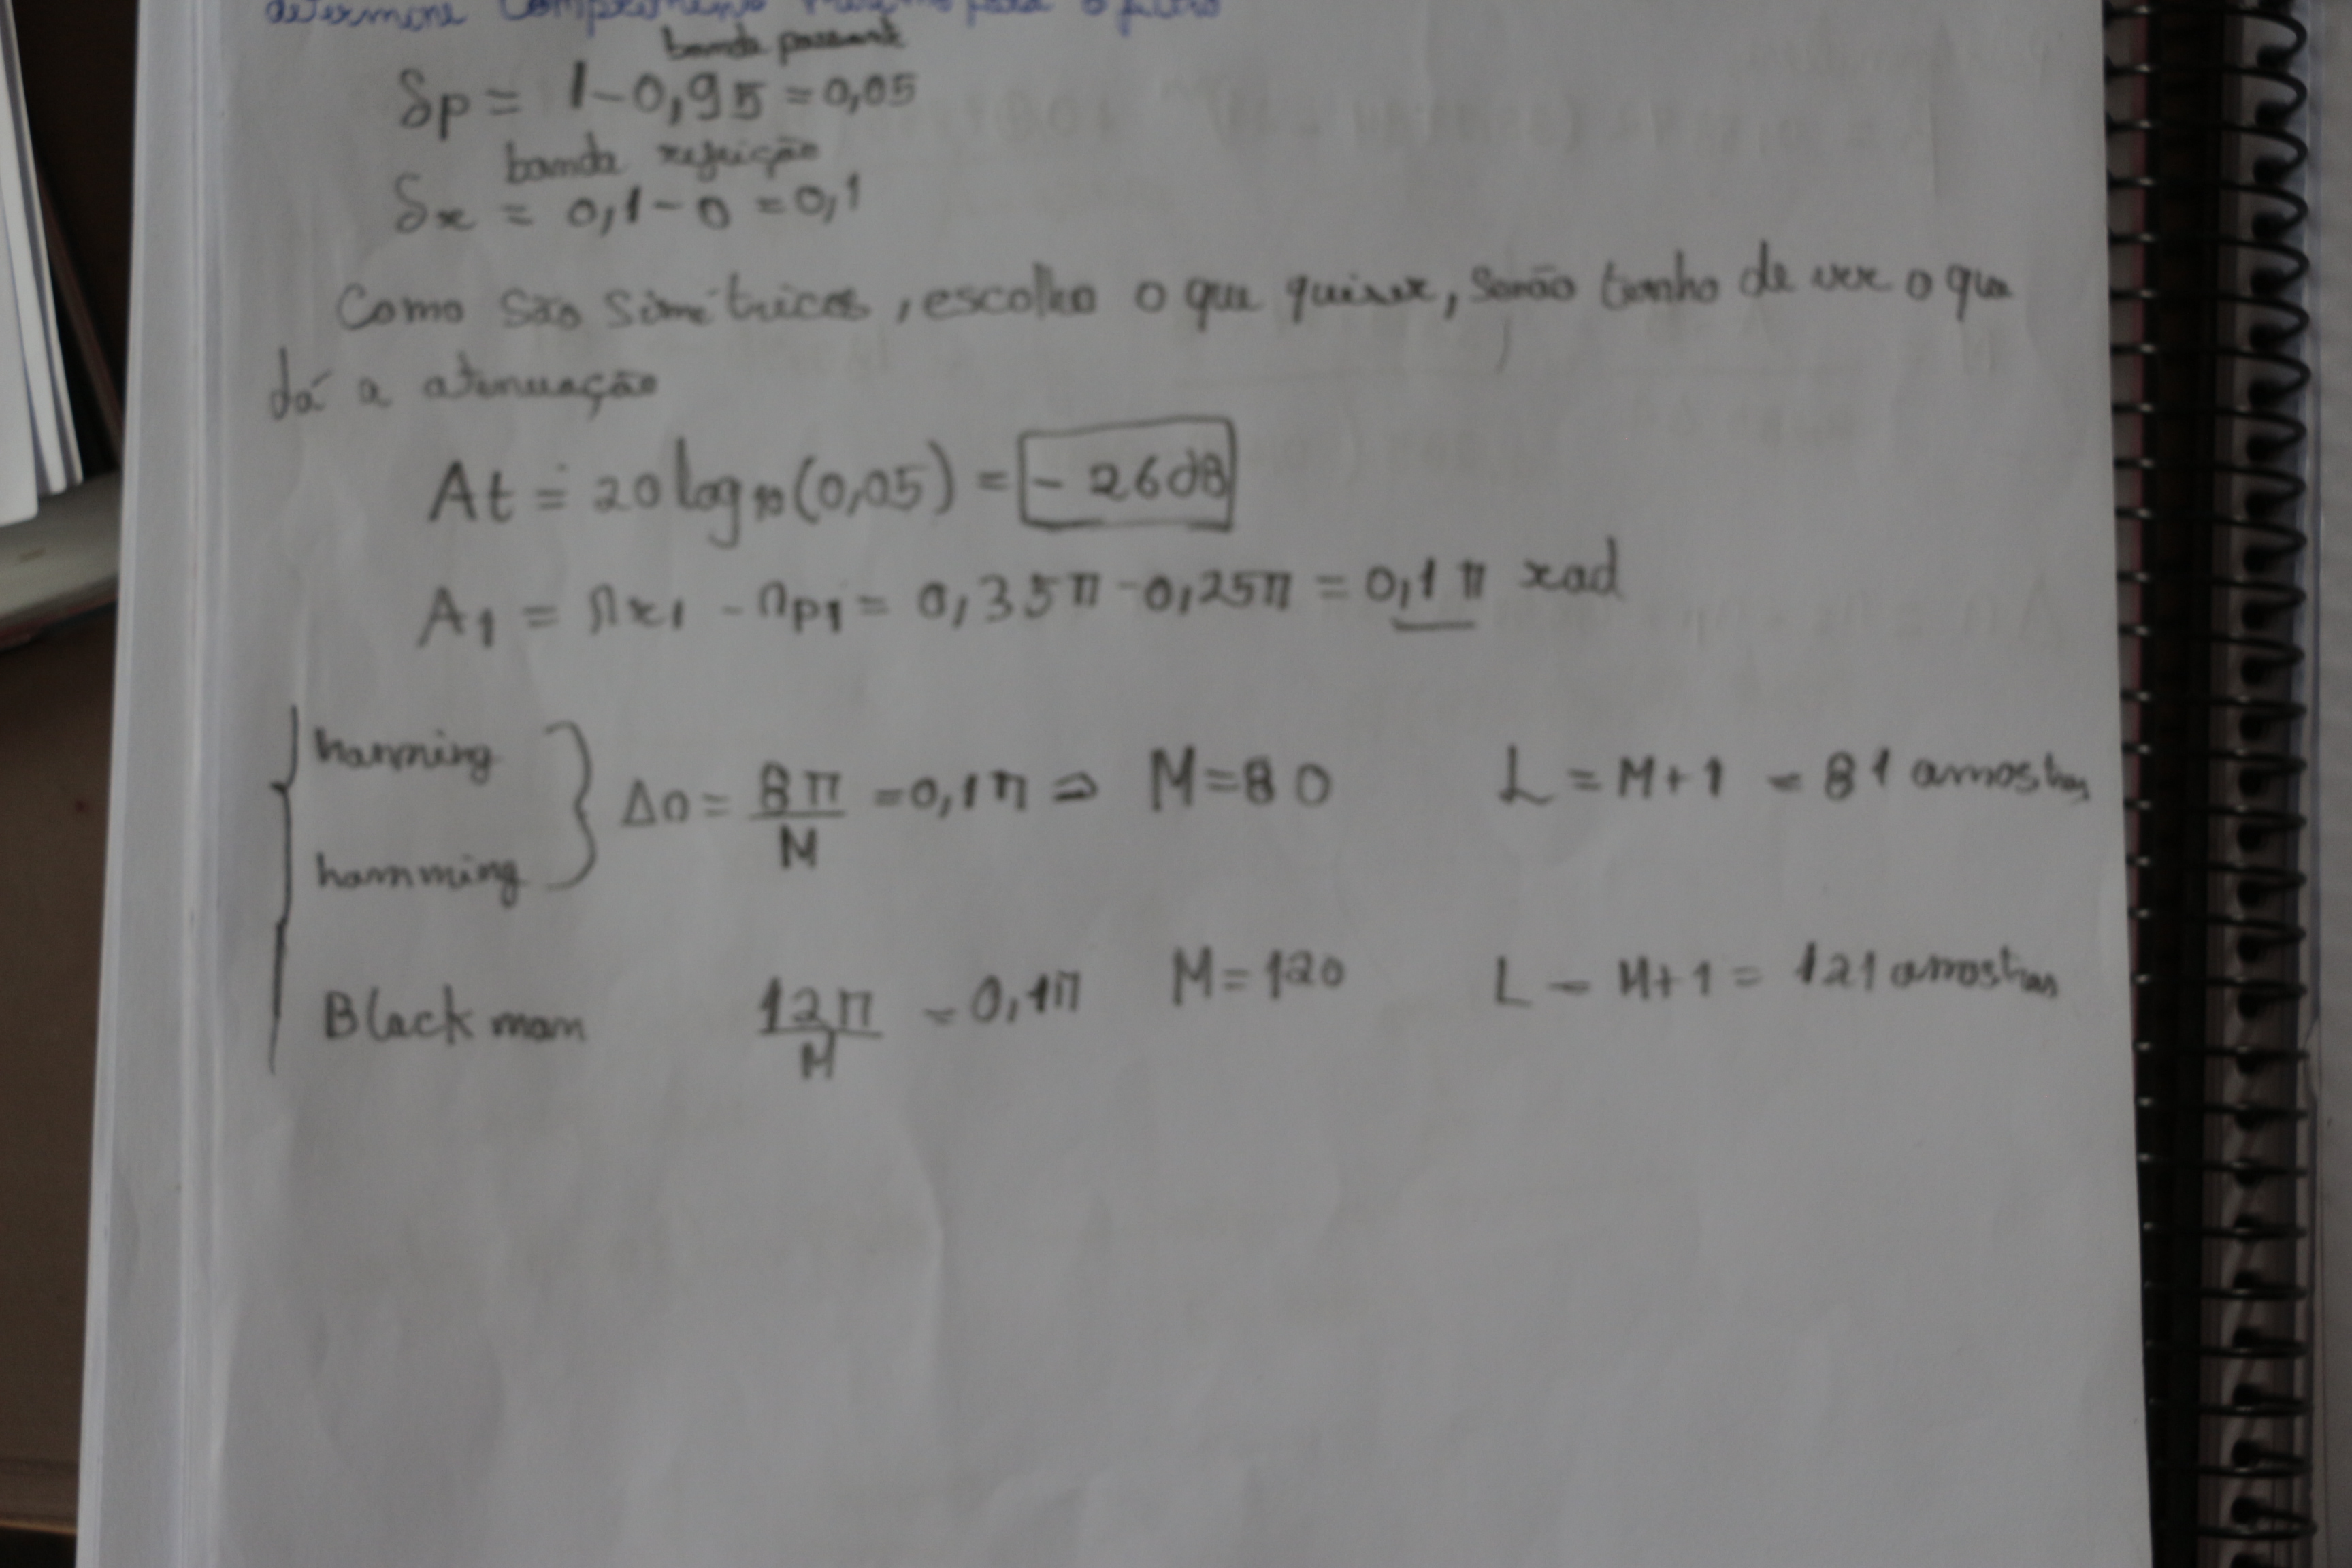 determine comprimento mesmo para o filtro
banda passante
δp = 1-0,95 = 0,05
banda rejeição
δr = 0,1-0 = 0,1
Como são simétricos, escolho o que quiser, senão tenho de ver o que
dá a atenuação
At = 20 log10(0,05) = - 26dB
A1 = Ωr1 - Ωp1 = 0,35π - 0,25π = 0,1π rad
hanning
ΔΩ = 8π/M = 0,1π ⇒ M=80 L = M+1 = 81 amostras
hamming
Blackman 12π/M = 0,1π M=120 L = M+1 = 121 amostras